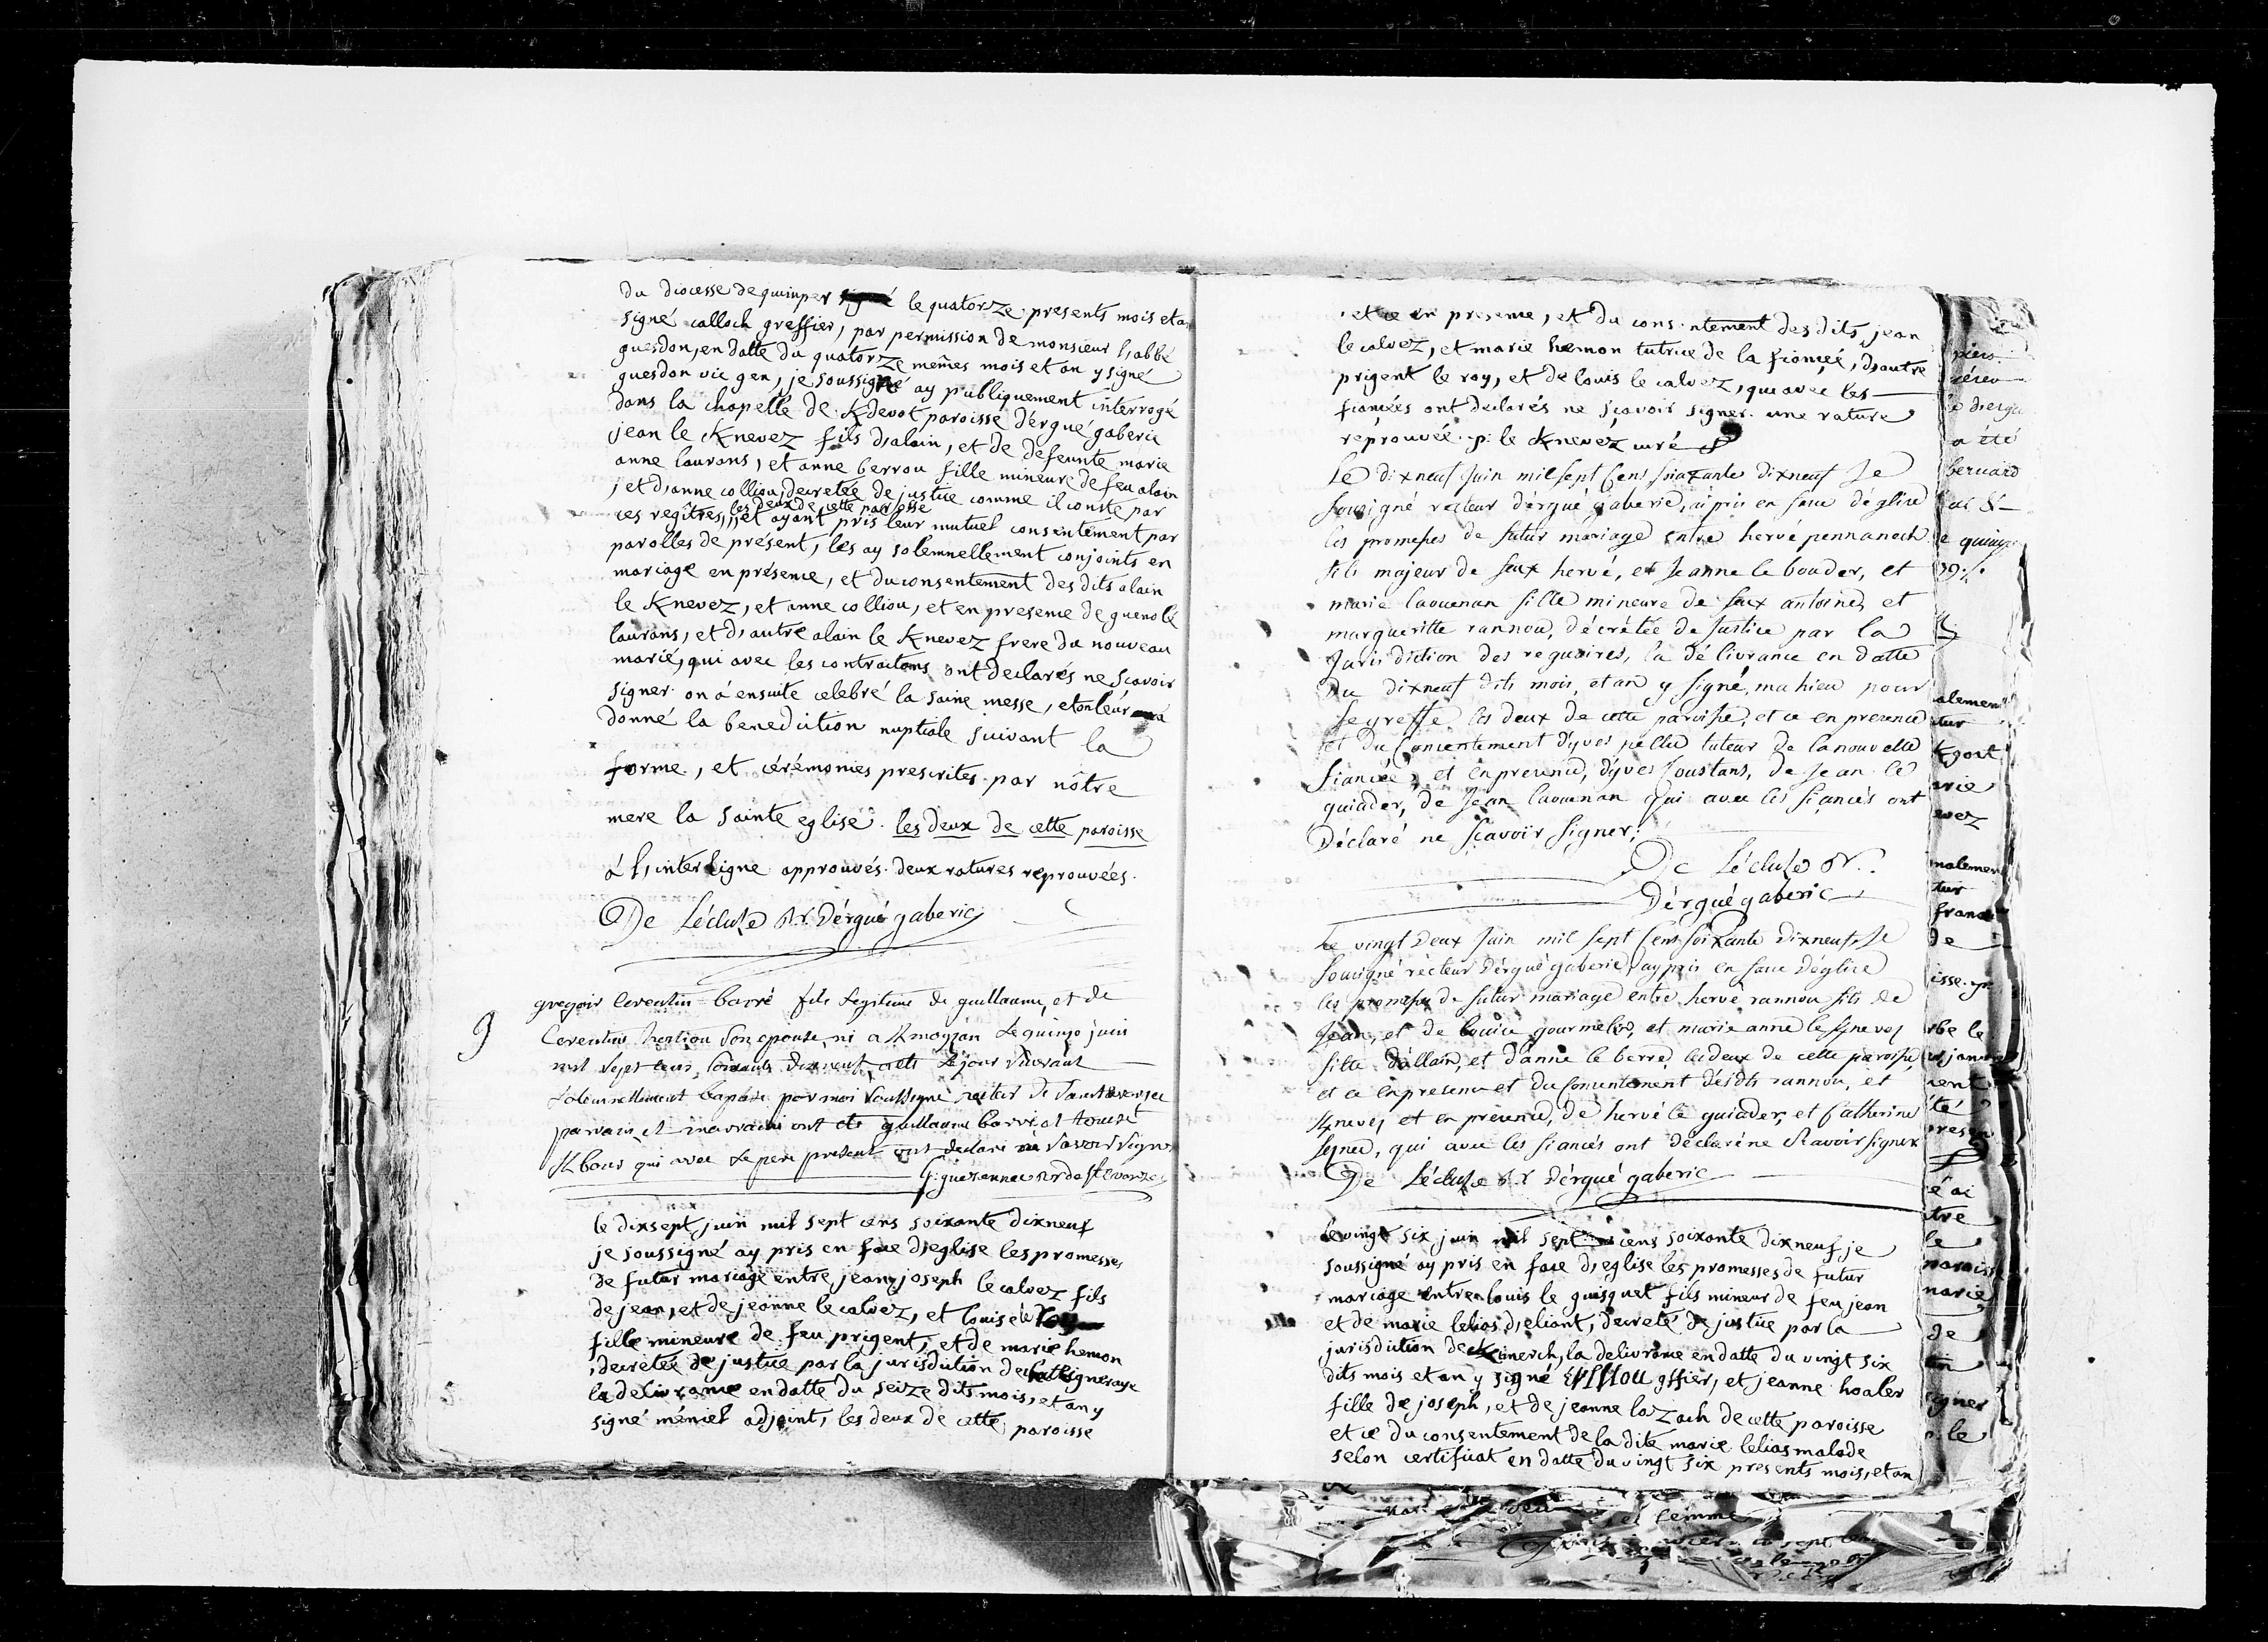 du diocesse de quimper signé le quatorze presents mois et an
signé calloch greffier, par permission de monsieur l,abbé
guesdon, en datte du quatorze mêmes mois et an y signé
guesdon vic gen, je soussigné ay publiquement interrogé
dans la chapelle de Kdevot paroisse d'ergué gaberic
jean le Knevez fils d,alain, et de defeunte marie
anne laurans, et anne berrou fille mineure de feu alain
, et d,anne colliou, decretée de justice comme il conste par
les deux de cette paroisse
ces regîtres,,, et ayant pris leur mutuel consentement par
parolles de présent, les ay solemnellement conjoints en
mariage en présence, et du consentement des dits alain
le Knevez, et anne colliou, et en presence de guenolé
laurans, et d,autre alain le Knevez frere du nouveau
marié, qui avec les contractans ont declarés ne scavoir
signer on á ensuite celebré la saine messe, et on leur a
donné la benediction nuptiale suivant la
forme, et cérémonies prescrites par nôtre
mere la sainte eglise. les deux de cette paroisse
á l,interligne approuvés. deux ratures reprouvées.
De Lécluse Rr. d'érgué gaberic
9
gregoir Corentin barré fils legitime de guillaume, et de
Corentine hostiou son epouse, né a Kmoyzan le quinze juin
mil sept cens soixante dixneuf a eté le jour suivant
solemnellement baptisé par moi soussigné recteur de
parrain, et marraine ont eté guillaume barré et
Kbour qui avec le pere present ont declaré ne savoir signer
G: guezennec rr de St Evarzec
le dixsept juin mil sept cens soixante dixneuf
je soussigné ay pris en face d,eglise les promesses
de futur mariage entre jean joseph le calvez fils
de jean, et de jeanne le calvez, et louise le roy
fille mineure de feu prigent, et de marie hemon
, decretée de justice par la jurisdiction de
la delivrance en datte du seize dits mois, et an y
signé méniel adjoint, les deux de cette paroisse
et ce en presence, et du consentement des dits jean
le calvez, et marie hemon tutrice de la fiancée, d,autre
prigent le roy, et de louis le calvez, qui avec les
fiancées ont declarés ne sçavoir signer. une rature
réprouvée. p: le Knevez curé
Le dixneuf Juin mil sept Cens soixante dixneuf Je
soussigné recteur d'ergué gaberic, ai pris en face d'eglise
les promesses de futur mariage entre hervé pennanech
fils majeur de feux hervé, et Jeanne le bouder, et
marie laouenan fille mineure de feux antoine, et
margueritte rannou, décrétée de Justice par la
Jurisdiction des reguaires, la délivrance en datte
du dixneuf dits mois, et an y signé, mahieu pour
le greffe, les deux de cette paroisse, et ce en presence
et du Consentement d'yves tuteur de la nouvelle
fiancée, et en presence, d'yves Coustans, de Jean le
guiader, de Jean laouenan qui avec les fiancés ont
Déclaré ne Scavoir signer;
De Lécluse Rr.
D'érgué gaberic
Le vingt deux Juin mil sept Cens soixante dixneuf Je
soussigné recteur d'ergué gaberic, ay pris en face d'eglise
les promesses de futur mariage entre hervé rannou fils de
Jean, et de louise gourmelen, et marie anne le Knevez
fille d'allain, et d'anne le berre, les deux de cette paroisse,
et ce en presence et du Consentement desdts rannou, et
Knevez et en presence, de hervé le guiader, et Catherine
qui avec les fiancés ont déclaré ne Scavoir signer
De Lécluse Rr D'érgué gaberic
le vingt six juin mil sept cens soixante dixneuf, je
soussigné ay pris en face d,eglise les promesses de futur
mariage entre louis le guisquet fils mineur de feu jean
et de marie lelias d,eliant, decreté de justice par la
jurisdiction de Kimerch, la delivrance en datte du vingt six
dits mois et an y signé gffier, et jeanne hoaler
fille de joseph, et de jeanne lozach de cette paroisse
et ce du consentement de la dite marie lelias malade
selon certificat en datte du vingt six presents mois, et an